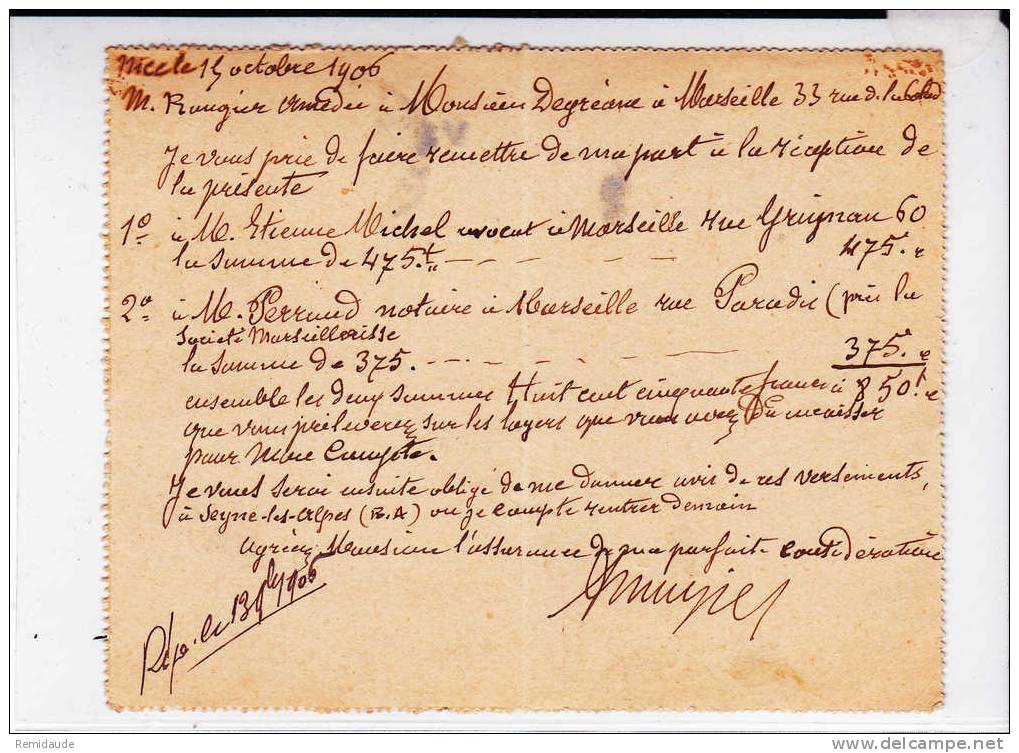 Nice le 15 octobre 1906
M. Rougier Amédée à Monsieur Degréane à Marseille 33 rue de la
Je vous prie de faire remettre de ma part à la réception de
la présente
1º à M. Etienne Michel avocat à Marseille rue Grignan 60
la somme de 475.f 475.f
2º à M. Perraud notaire à Marseille rue Paradis (près la
Société Marseillaisse
la somme de 375. 375.
ensemble les deux sommes Huit cent cinquante francs 850.f
que vous prélèverez sur les loyers que vous avez dû encaisser
pour Mon Compte.
Je vous serai ensuite obligé de me donner avis de ces versements,
à Seyne-les-Alpes (B.A) ou je compte rentrer demain
Agréez Monsieur l'assurance de ma parfaite considération
Rougier
Rép. le 1906
Remidaude
www.delcampe.net